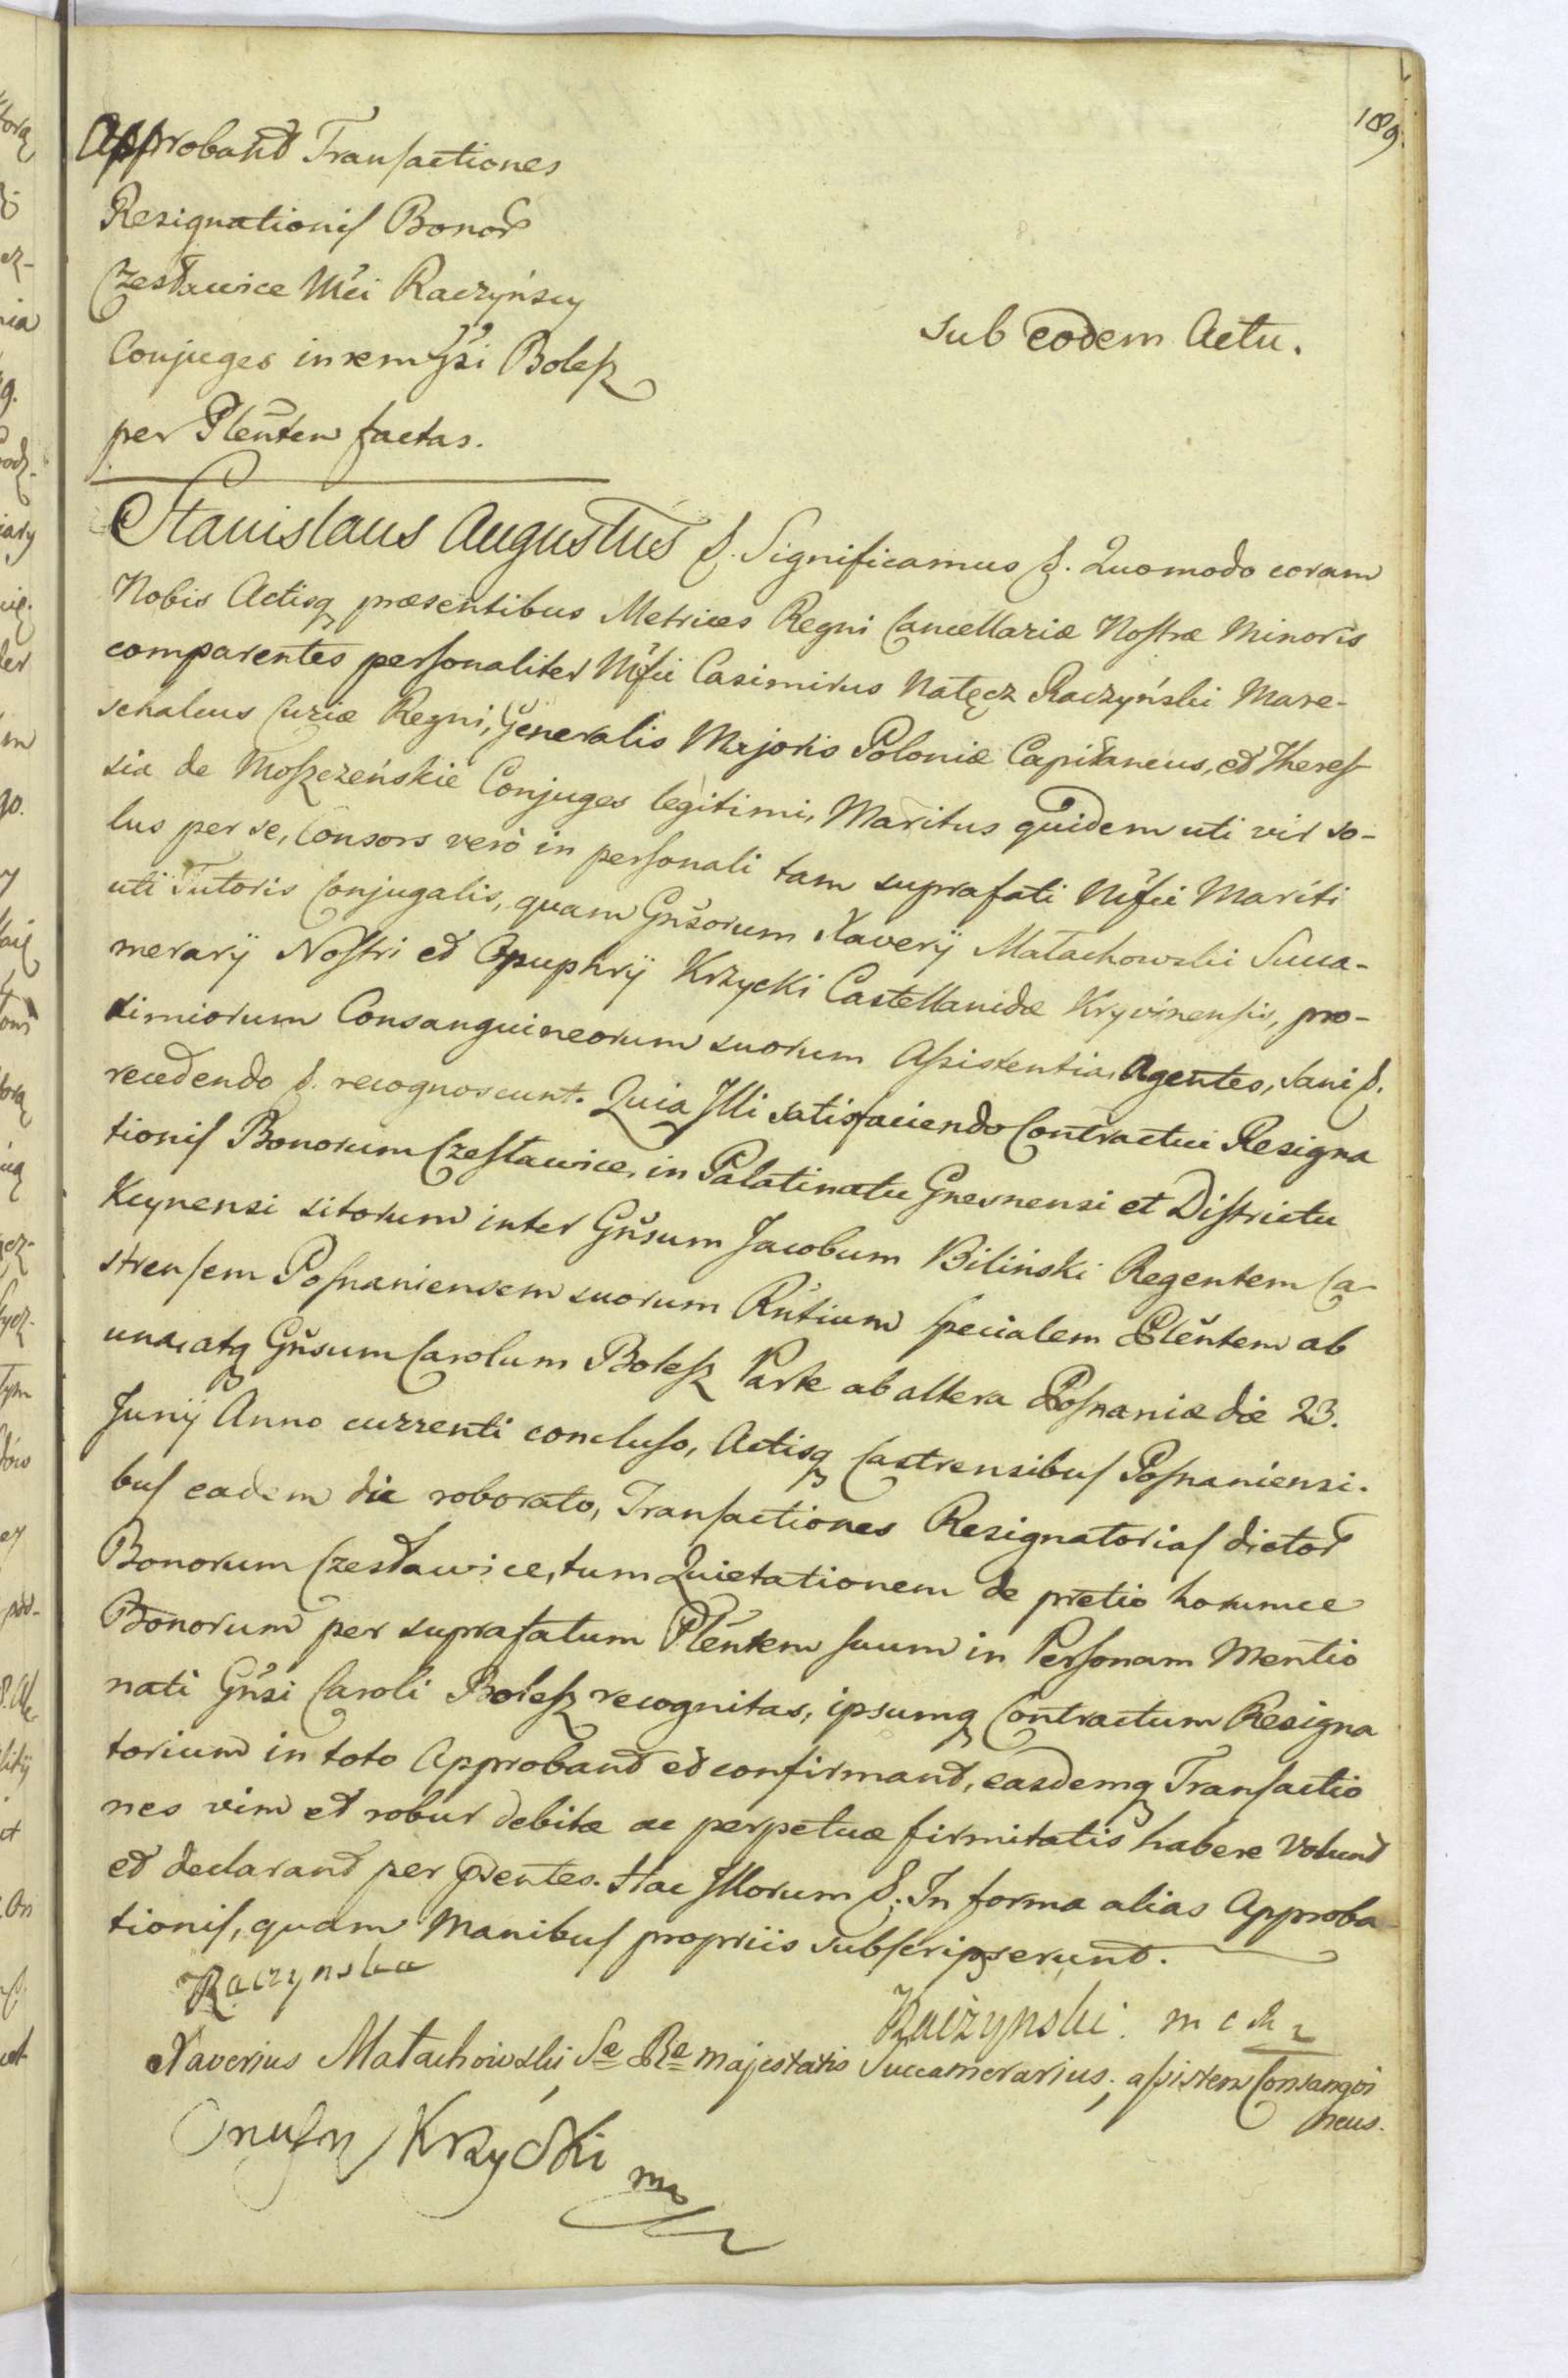 189.
Approband Transactiones
Resignationis Bonor
Czesławice Mci Raczyńscy
Conjuges in rem Gsi Bolesz
per Plenten factas.
Sub eodem Actu.
Stanislaus Augustus &. Significamus &. Quomodo coram
Nobis Actisq præsentibus Metrices Regni Cancellariæ Nostræ Minoris
comparentes personaliter Mfci Casimirus Nałęcz Raczyński Mare-
schalcus Curiæ Regni, Generalis Majoris Poloniæ Capitaneus, et Theres-
sia de Moszczeńskie Conjuges legitimi, Maritus quidem uti vir so-
lus per se, Consors verò in personali tam suprafati Mfci Mariti
uti Tutoris Conjugalis, quam Gnsorum Xaverij Małachowski Succa-
merarij Nostri et Onuphrij Krzycki Castellanidæ Krzyvinensis, pro-
ximiorum Consanguineorum suorum Assistentia, Agentes, Sani &.
recedendo &. recognoscunt. Quia Illi satisfaciendo Contractui Resigna
tionis Bonorum Czesławice, in Palatinatu Gnesnensi et Districtu
Kcynensi sitorum inter Gnsum Jacobum Biliński Regentem Ca
strensem Posnaniensem suorum Rntium specialem Plentem ab
una, atq Gnsum Carolum Bolesz Parte ab altera Posnaniæ die 23.
Junij Anno currenti concluso, Actisq Castrensibus Posnaniensi.
bus eadem die roborato, Transactiones Resignatorias dictor
Bonorum Czesławice, tum Quietationem de pretio horumce
Bonorum per suprafatum Plentem suum in Personam Mentio
nati Gnsi Caroli Bolesz recognitas, ipsumq Contractum Resigna
torium in toto Approband et confirmand, easdemq Transactio
nes vim et robur debitæ ac perpetuæ firmitatis habere Volund
et declarand per pntes. Hac Illorum &. In forma alias Approba
tionis, quam Manibus propriis subscripserund.
Raczynska
Raczynski
Xaverius Małachowski Sæ Ræ Majestatis Succamerarius, assistens Consangvi
neus.
Onufry Krzycki mp